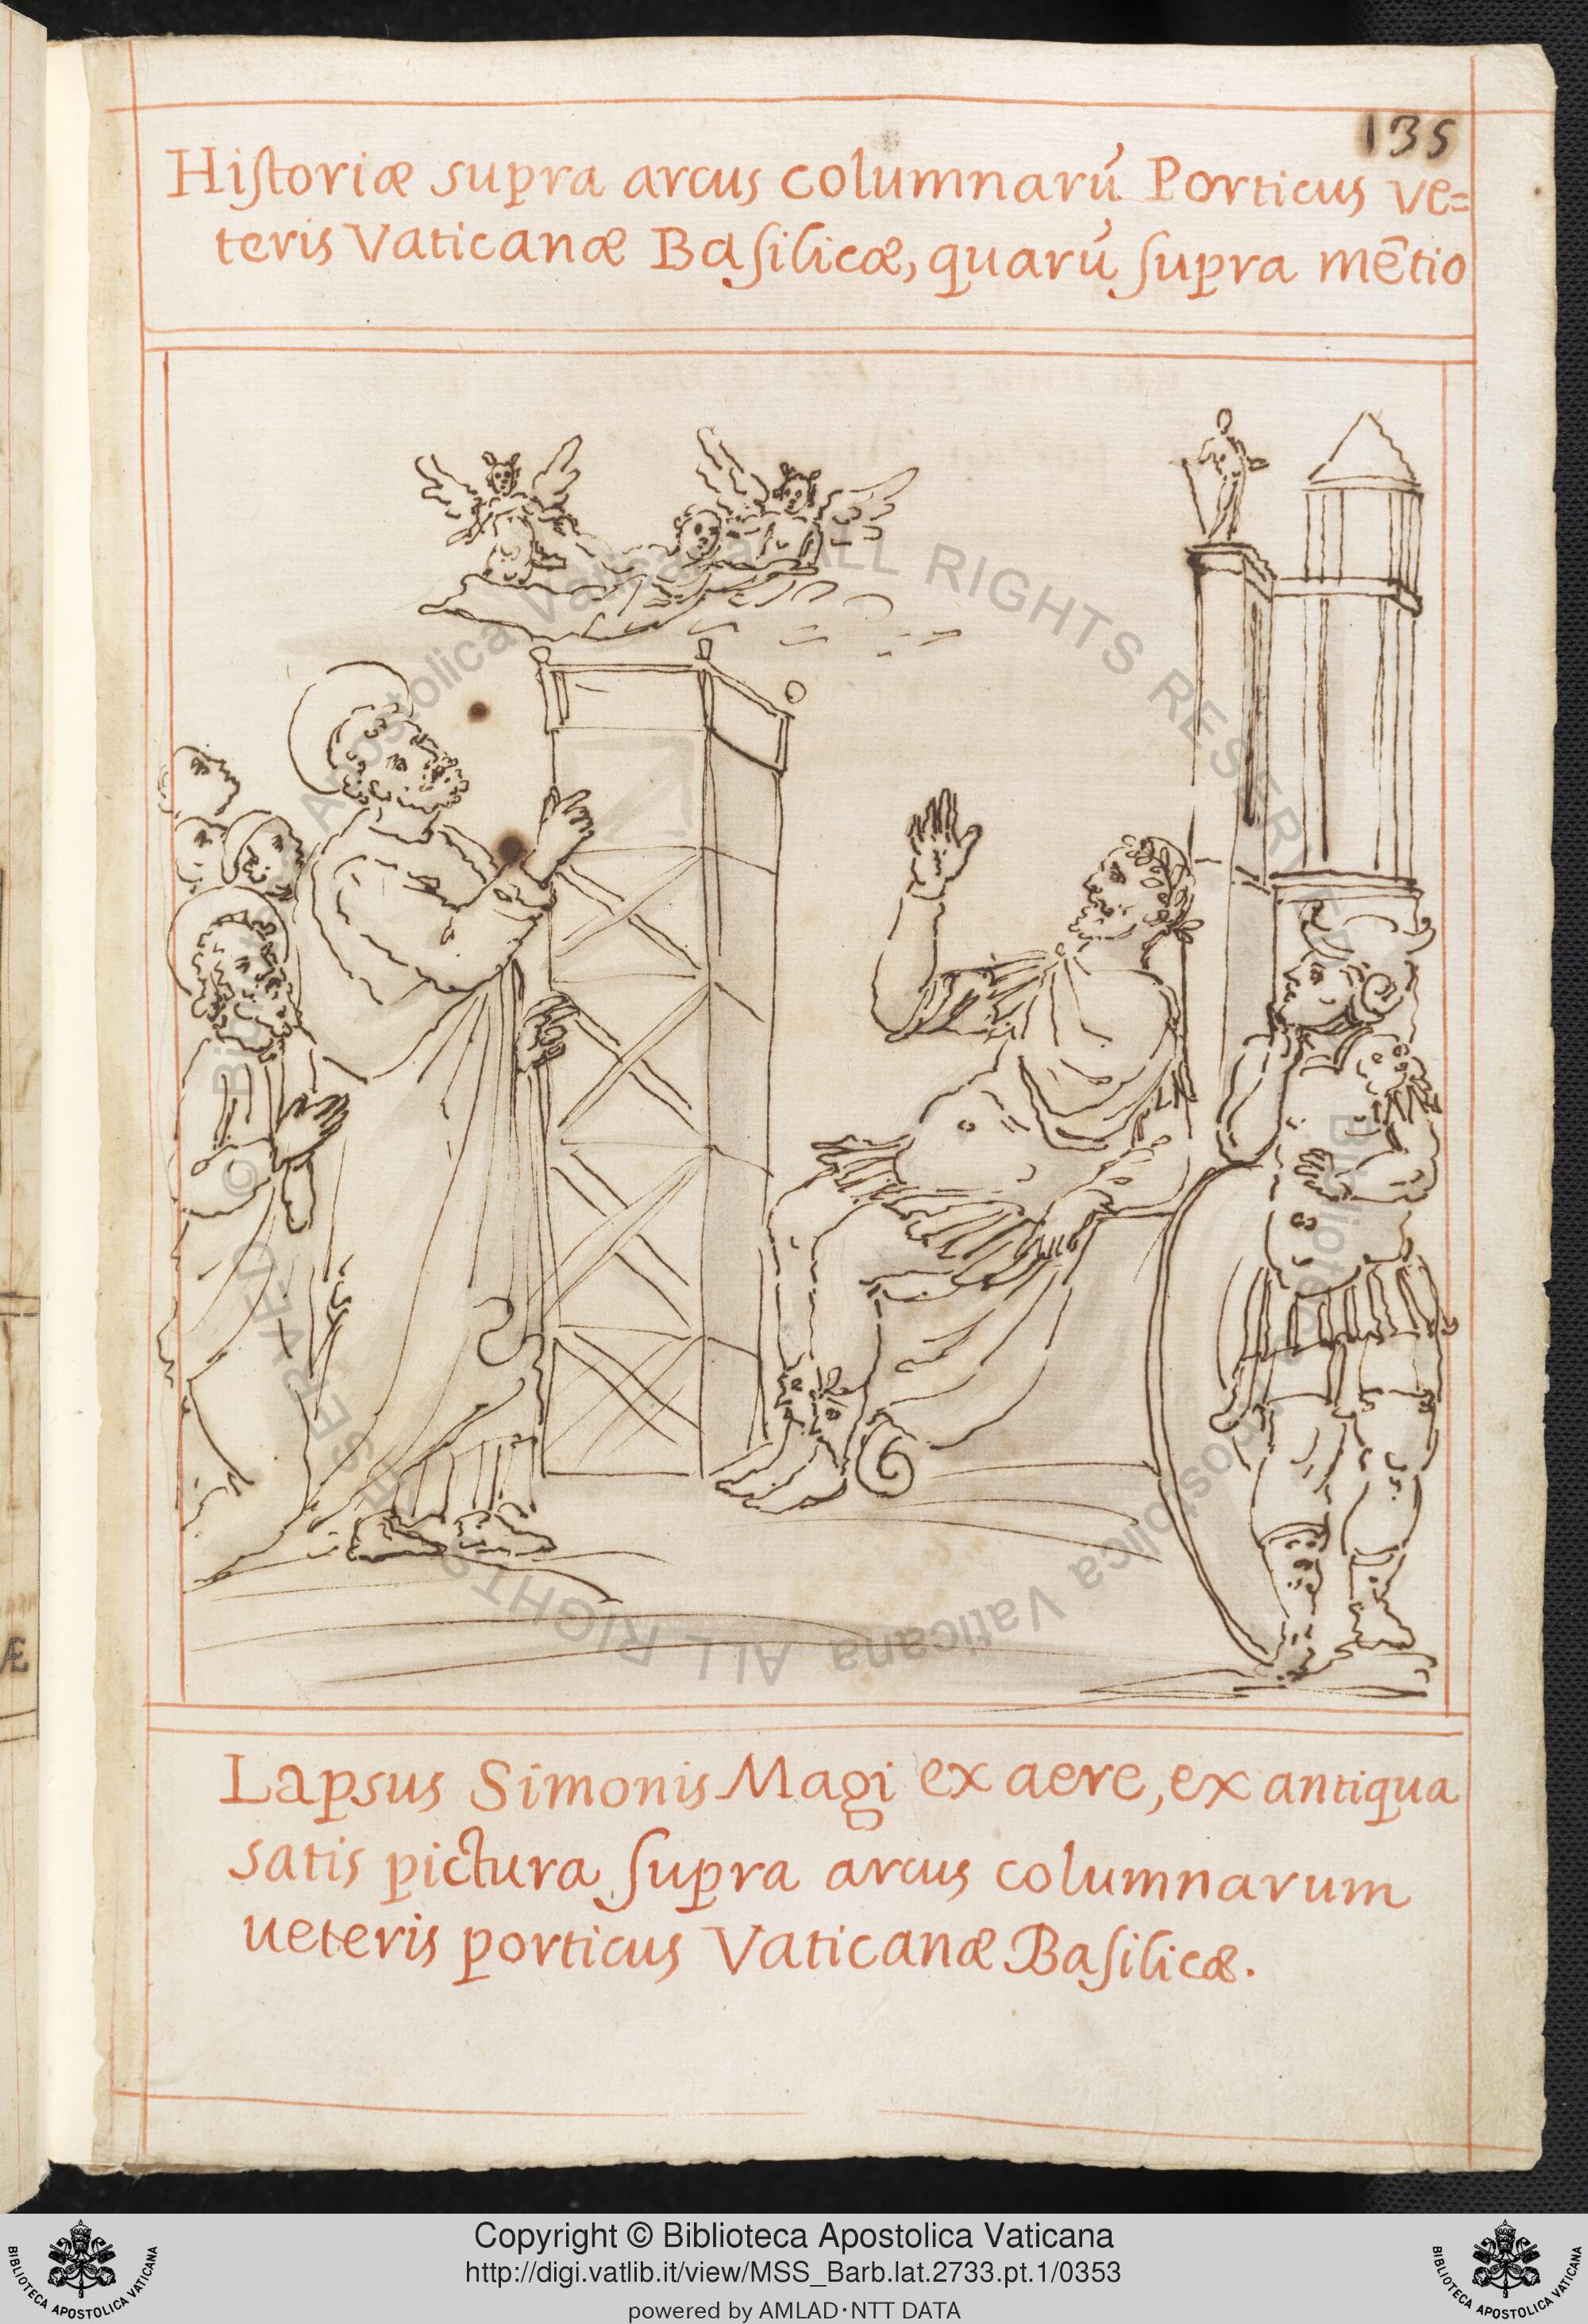 135
Hiſtoriæ supra arcus columnarú Porticus ve=
teris Vaticanæ Baſilicæ, quarú ſupra mẽtio
Lapsus Simonis Magi ex aere, ex antiqua
satis pictura ſupra arcus columnarum
ueteris porticus Vaticanæ Baſilicæ.
Æ
© Biblioteca Apostolica Vaticana ALL RIGHTS RESERVED
© Biblioteca Apostolica Vaticana ALL RIGHTS RESERVED
Copyright © Biblioteca Apostolica Vaticana
http://digi.vatlib.it/view/MSS_Barb.lat.2733.pt.1/0353
powered by AMLAD·NTT DATA
BIBLIOTECA APOSTOLICA VATICANA
BIBLIOTECA APOSTOLICA VATICANA